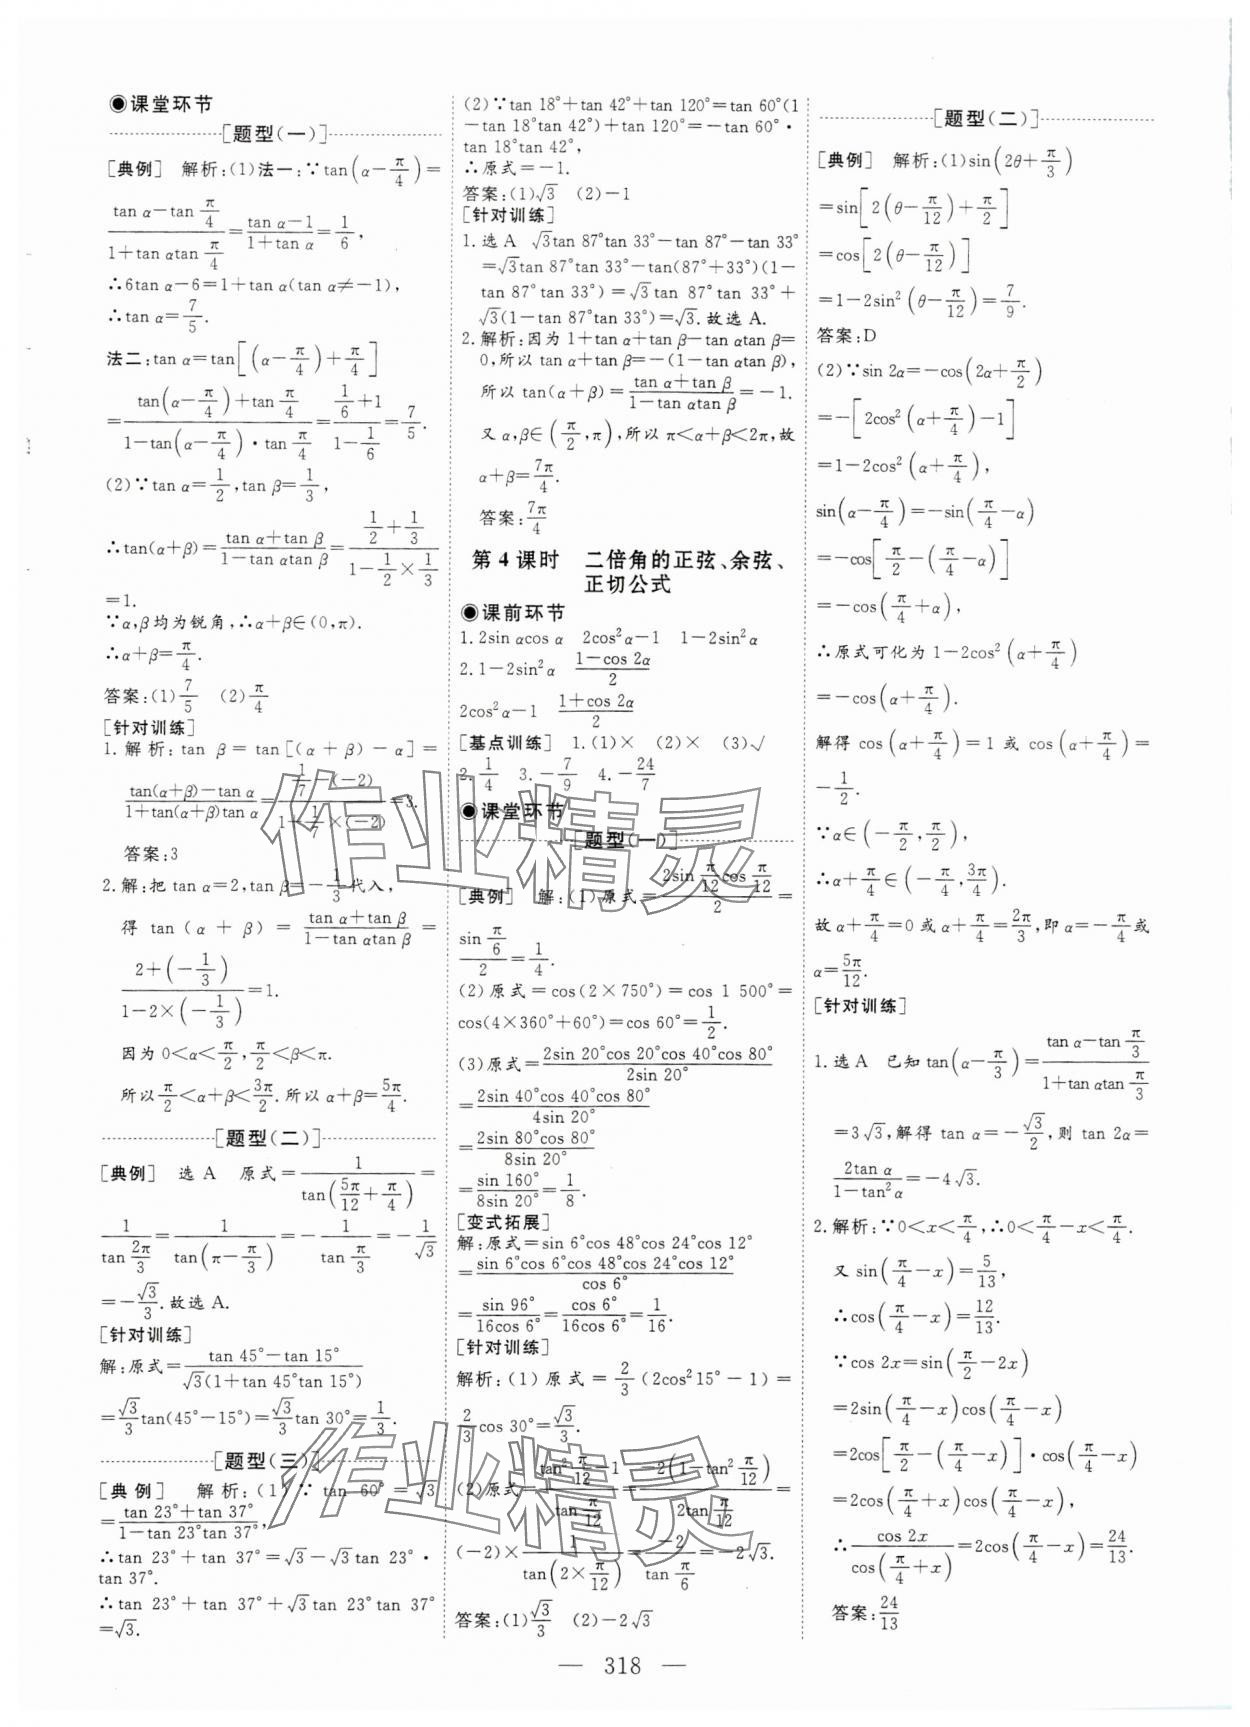 ◉课堂环节
[题型(一)]
[典例] 解析:(1)法一:∵tan(α-π/4)=
(tan α-tan π/4)/(1+tan αtan π/4)=(tan α-1)/(1+tan α)=1/6,
∴6tan α-6=1+tan α(tan α≠-1),
∴tan α=7/5.
法二:tan α=tan[(α-π/4)+π/4]
=(tan(α-π/4)+tan π/4)/(1-tan(α-π/4)·tan π/4)=(1/6+1)/(1-1/6)=7/5.
(2)∵tan α=1/2,tan β=1/3,
∴tan(α+β)=(tan α+tan β)/(1-tan αtan β)=(1/2+1/3)/(1-1/2×1/3)
=1.
∵α,β均为锐角,∴α+β∈(0,π).
∴α+β=π/4.
答案:(1)7/5 (2)π/4
[针对训练]
1.解析:tan β=tan[(α+β)-α]=
(tan(α+β)-tan α)/(1+tan(α+β)tan α)=(1/7-(-2))/(1+1/7×(-2))=3.
答案:3
2.解:把 tan α=2,tan β=-1/3代入,
得 tan(α+β)=(tan α+tan β)/(1-tan αtan β)=
(2+(-1/3))/(1-2×(-1/3))=1.
因为 0<α<π/2,π/2<β<π.
所以π/2<α+β<3π/2.所以 α+β=5π/4.
[题型(二)]
[典例] 选 A 原式=1/tan(5π/12+π/4)=
1/tan 2π/3=1/tan(π-π/3)=-1/tan π/3=-1/√3
=-√3/3.故选 A.
[针对训练]
解:原式=(tan 45°-tan 15°)/(√3(1+tan 45°tan 15°))
=√3/3tan(45°-15°)=√3/3tan 30°=1/3.
[题型(三)]
[典例] 解析:(1)∵tan 60°=√3
=(tan 23°+tan 37°)/(1-tan 23°tan 37°),
∴tan 23°+tan 37°=√3-√3tan 23°·
tan 37°.
∴tan 23°+tan 37°+√3tan 23°tan 37°
=√3.
(2)∵tan 18°+tan 42°+tan 120°=tan 60°(1
-tan 18°tan 42°)+tan 120°=-tan 60°·
tan 18°tan 42°,
∴原式=-1.
答案:(1)√3 (2)-1
[针对训练]
1.选 A √3tan 87°tan 33°-tan 87°-tan 33°
=√3tan 87°tan 33°-tan(87°+33°)(1-
tan 87°tan 33°)=√3tan 87°tan 33°+
√3(1-tan 87°tan 33°)=√3.故选 A.
2.解析:因为 1+tan α+tan β-tan αtan β=
0,所以 tan α+tan β=-(1-tan αtan β),
所以 tan(α+β)=(tan α+tan β)/(1-tan αtan β)=-1.
又 α,β∈(π/2,π),所以 π<α+β<2π,故
α+β=7π/4.
答案:7π/4
第 4 课时 二倍角的正弦、余弦、
正切公式
◉课前环节
1.2sin αcos α 2cos²α-1 1-2sin²α
2.1-2sin²α (1-cos 2α)/2
2cos²α-1 (1+cos 2α)/2
[基点训练] 1.(1)× (2)× (3)√
2.1/4 3.-7/9 4.-24/7
◉课堂环节
[题型(一)]
[典例] 解:(1)原式=(2sin π/12cos π/12)/2=
(sin π/6)/2=1/4.
(2)原式=cos(2×750°)=cos 1 500°=
cos(4×360°+60°)=cos 60°=1/2.
(3)原式=(2sin 20°cos 20°cos 40°cos 80°)/(2sin 20°)
=(2sin 40°cos 40°cos 80°)/(4sin 20°)
=(2sin 80°cos 80°)/(8sin 20°)
=(sin 160°)/(8sin 20°)=1/8.
[变式拓展]
解:原式=sin 6°cos 48°cos 24°cos 12°
=(sin 6°cos 6°cos 48°cos 24°cos 12°)/(cos 6°)
=(sin 96°)/(16cos 6°)=(cos 6°)/(16cos 6°)=1/16.
[针对训练]
解析:(1)原式=2/3(2cos²15°-1)=
2/3cos 30°=√3/3.
(2)原式=(tan²π/12-1)/(tan π/12)=(-2(1-tan²π/12))/(2tan π/12)=
(-2)×1/tan(2×π/12)=-2/(tan π/6)=-2√3.
答案:(1)√3/3 (2)-2√3
[题型(二)]
[典例] 解析:(1)sin(2θ+π/3)
=sin[2(θ-π/12)+π/2]
=cos[2(θ-π/12)]
=1-2sin²(θ-π/12)=7/9.
答案:D
(2)∵sin 2α=-cos(2α+π/2)
=-[2cos²(α+π/4)-1]
=1-2cos²(α+π/4),
sin(α-π/4)=-sin(π/4-α)
=-cos[π/2-(π/4-α)]
=-cos(π/4+α),
∴原式可化为 1-2cos²(α+π/4)
=-cos(α+π/4).
解得 cos(α+π/4)=1 或 cos(α+π/4)=
-1/2.
∵α∈(-π/2,π/2),
∴α+π/4∈(-π/4,3π/4).
故 α+π/4=0 或 α+π/4=2π/3,即 α=-π/4或
α=5π/12.
[针对训练]
1.选 A 已知 tan(α-π/3)=(tan α-tan π/3)/(1+tan αtan π/3)
=3√3,解得 tan α=-√3/2,则 tan 2α=
(2tan α)/(1-tan²α)=-4√3.
2.解析:∵0<x<π/4,∴0<π/4-x<π/4.
又 sin(π/4-x)=5/13,
∴cos(π/4-x)=12/13.
∵cos 2x=sin(π/2-2x)
=2sin(π/4-x)cos(π/4-x)
=2cos[π/2-(π/4-x)]·cos(π/4-x)
=2cos(π/4+x)cos(π/4-x),
∴cos 2x/cos(π/4+x)=2cos(π/4-x)=24/13.
答案:24/13
— 318 —
作业精灵
作业精灵